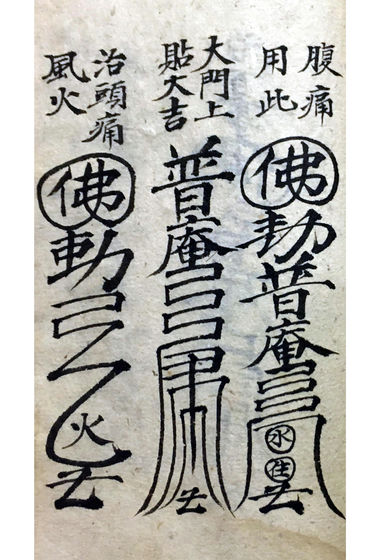 腹痛
用此
佛勅普庵
水
住
大門上
貼大吉
普庵
治頭痛
風火
佛勅
火